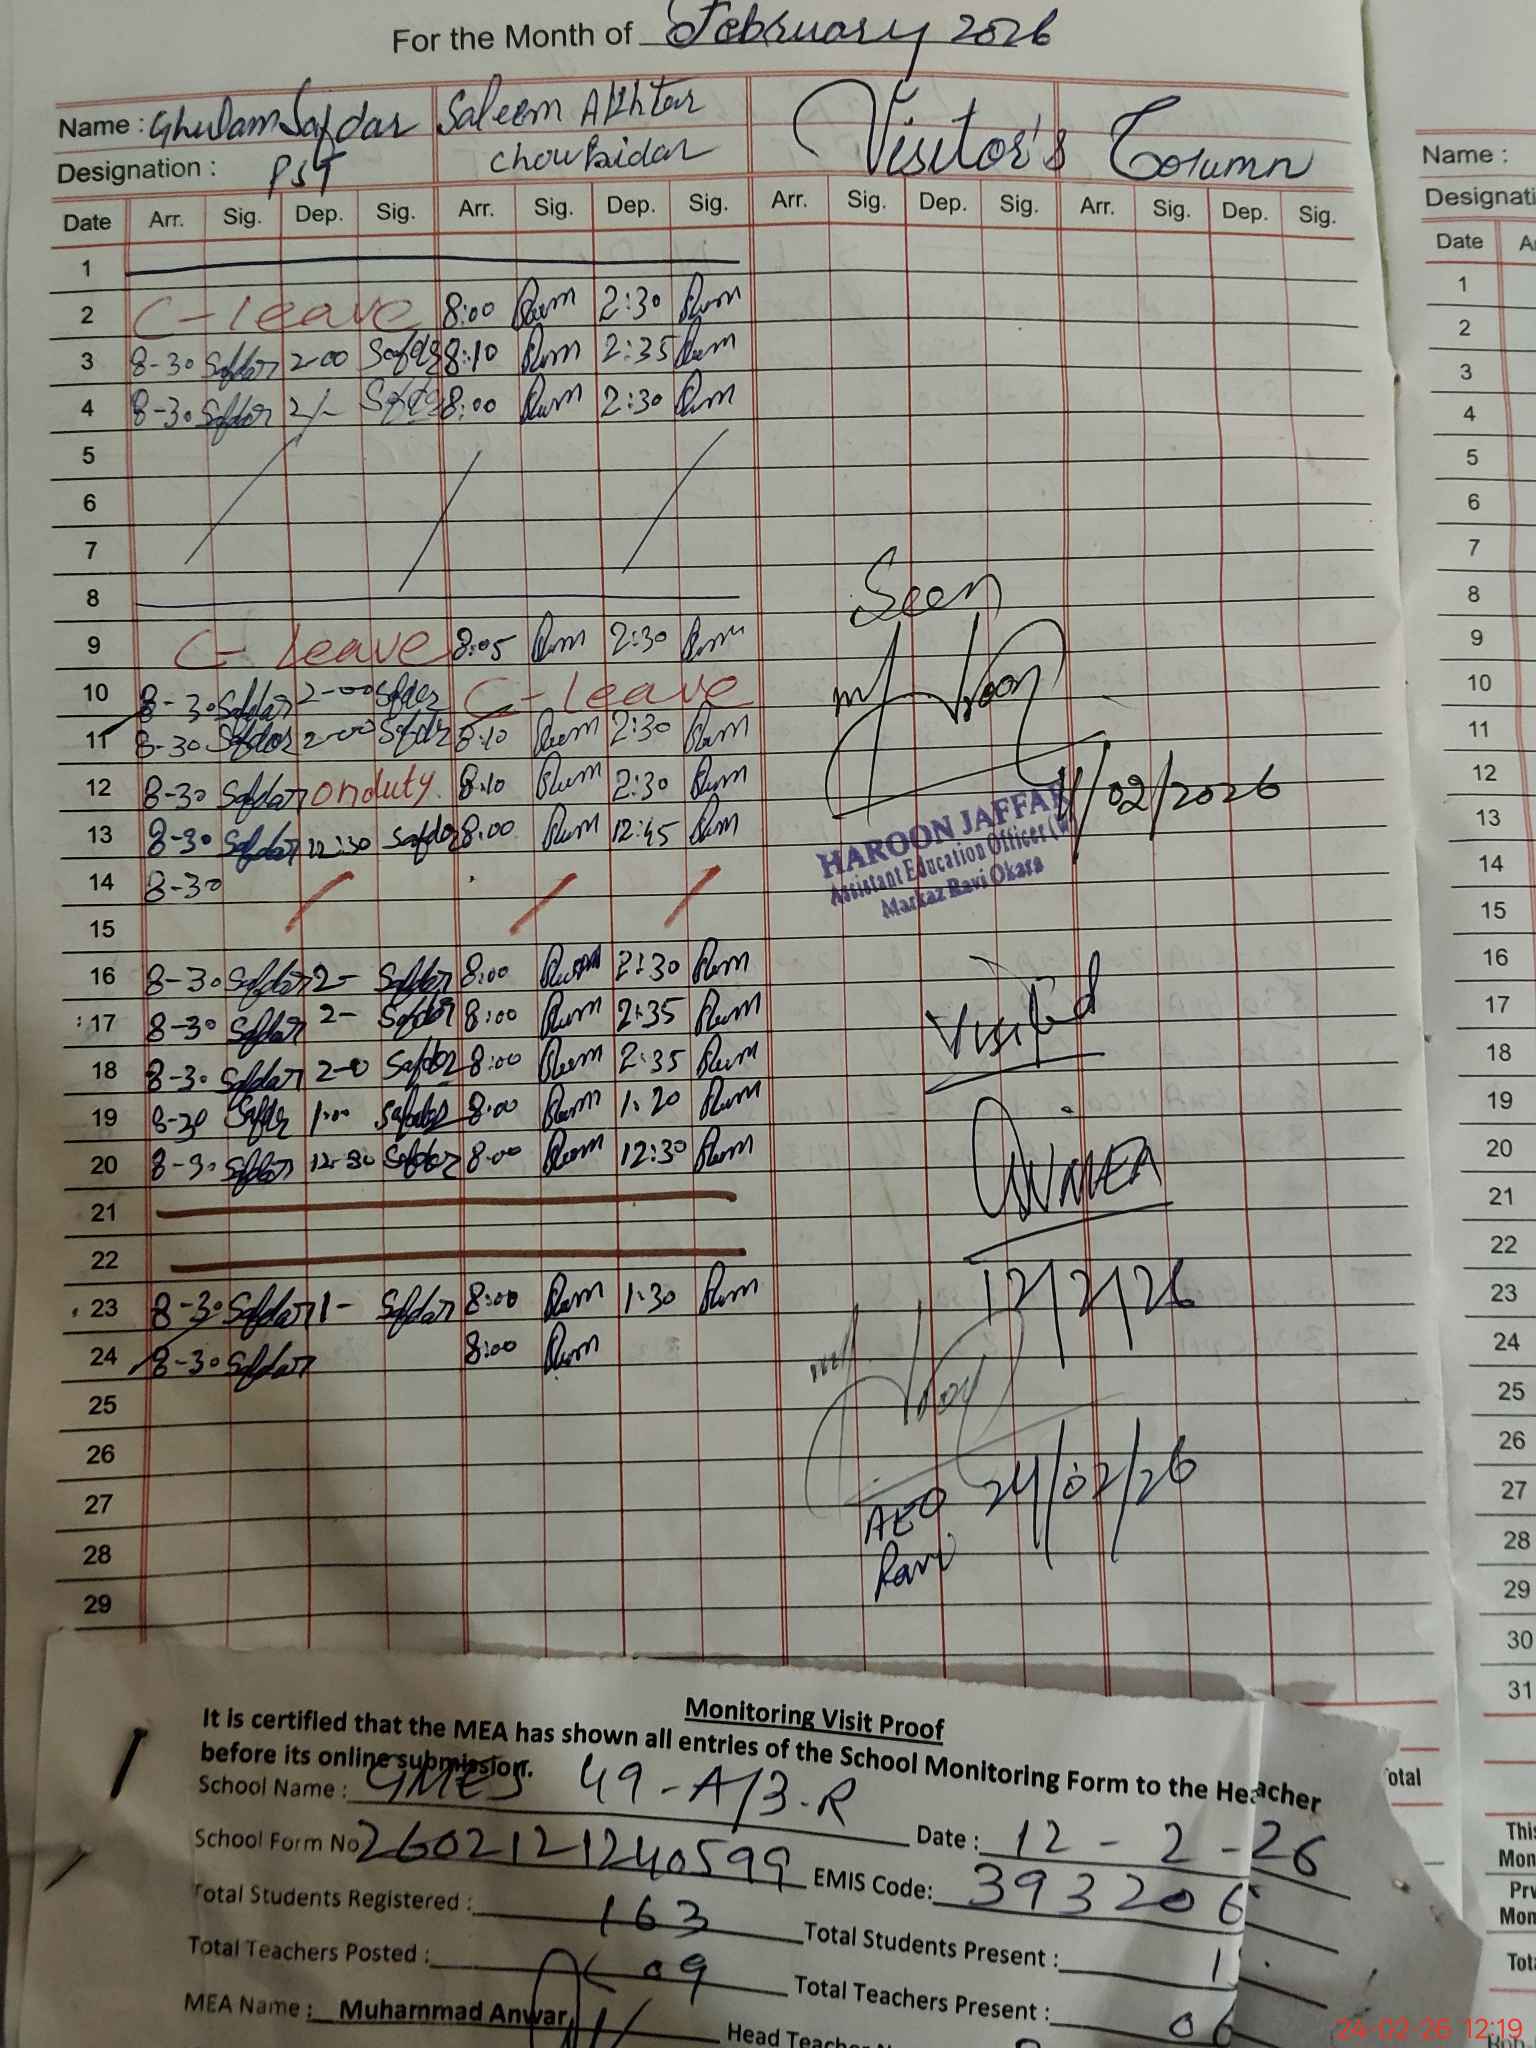 For the Month of February 2026
Name : Ghulam Safdar Saleem Akhtar Visitor's Column
Designation : PST Chowkidar
Date Arr. Sig. Dep. Sig. Arr. Sig. Dep. Sig. Arr. Sig. Dep. Sig. Arr. Sig. Dep. Sig.
1
2 C-leave 8:00 2:30
3 8-30 Safdar 2-00 Safdar 8:10 2:35
4 8-30 Safdar 2/- Safdar 8:00 2:30
5
6
7
8
9 C-leave 8:05 2:30
10 8-30 Safdar 2-00 Safdar C-leave
11 8-30 Safdar 2-00 Safdar 8:10 2:30
12 8-30 Safdar onduty 8:10 2:30
13 8-30 Safdar 12:30 Safdar 8:00 12:45
14 8-30
15
16 8-30 Safdar 2- Safdar 8:00 2:30
17 8-30 Safdar 2- Safdar 8:00 2:35
18 8-30 Safdar 2-0 Safdar 8:00 2:35
19 8-30 Safdr 1:00 Safdar 8:00 1:20
20 8-30 Safdar 12-30 Safdar 8:00 12:30
21
22
23 8-30 Safdar 1- Safdar 8:00 1:30
24 8-30 Safdar 8:00
25
26
27
28
29
Seen
11/02/2026
HAROON JAFFAR
Assistant Education Officer (W)
Markaz Ravi Okara
Visited
MEA
12/2/26
24/02/26
AEO
Ravi
Name :
Designati
Date A
1
2
3
4
5
6
7
8
9
10
11
12
13
14
15
16
17
18
19
20
21
22
23
24
25
26
27
28
29
30
31
otal
This
Mon
Prv
Mon
Tota
Monitoring Visit Proof
It is certified that the MEA has shown all entries of the School Monitoring Form to the Heacher
before its online submission.
School Name : GMES 49-A/3-R
Date : 12-2-26
School Form No 2602121240599 EMIS Code: 393206
Total Students Registered : 163 Total Students Present : 1
Total Teachers Posted : 09 Total Teachers Present : 06
MEA Name : Muhammad Anwar Head Teacher
24-02-26 12:19